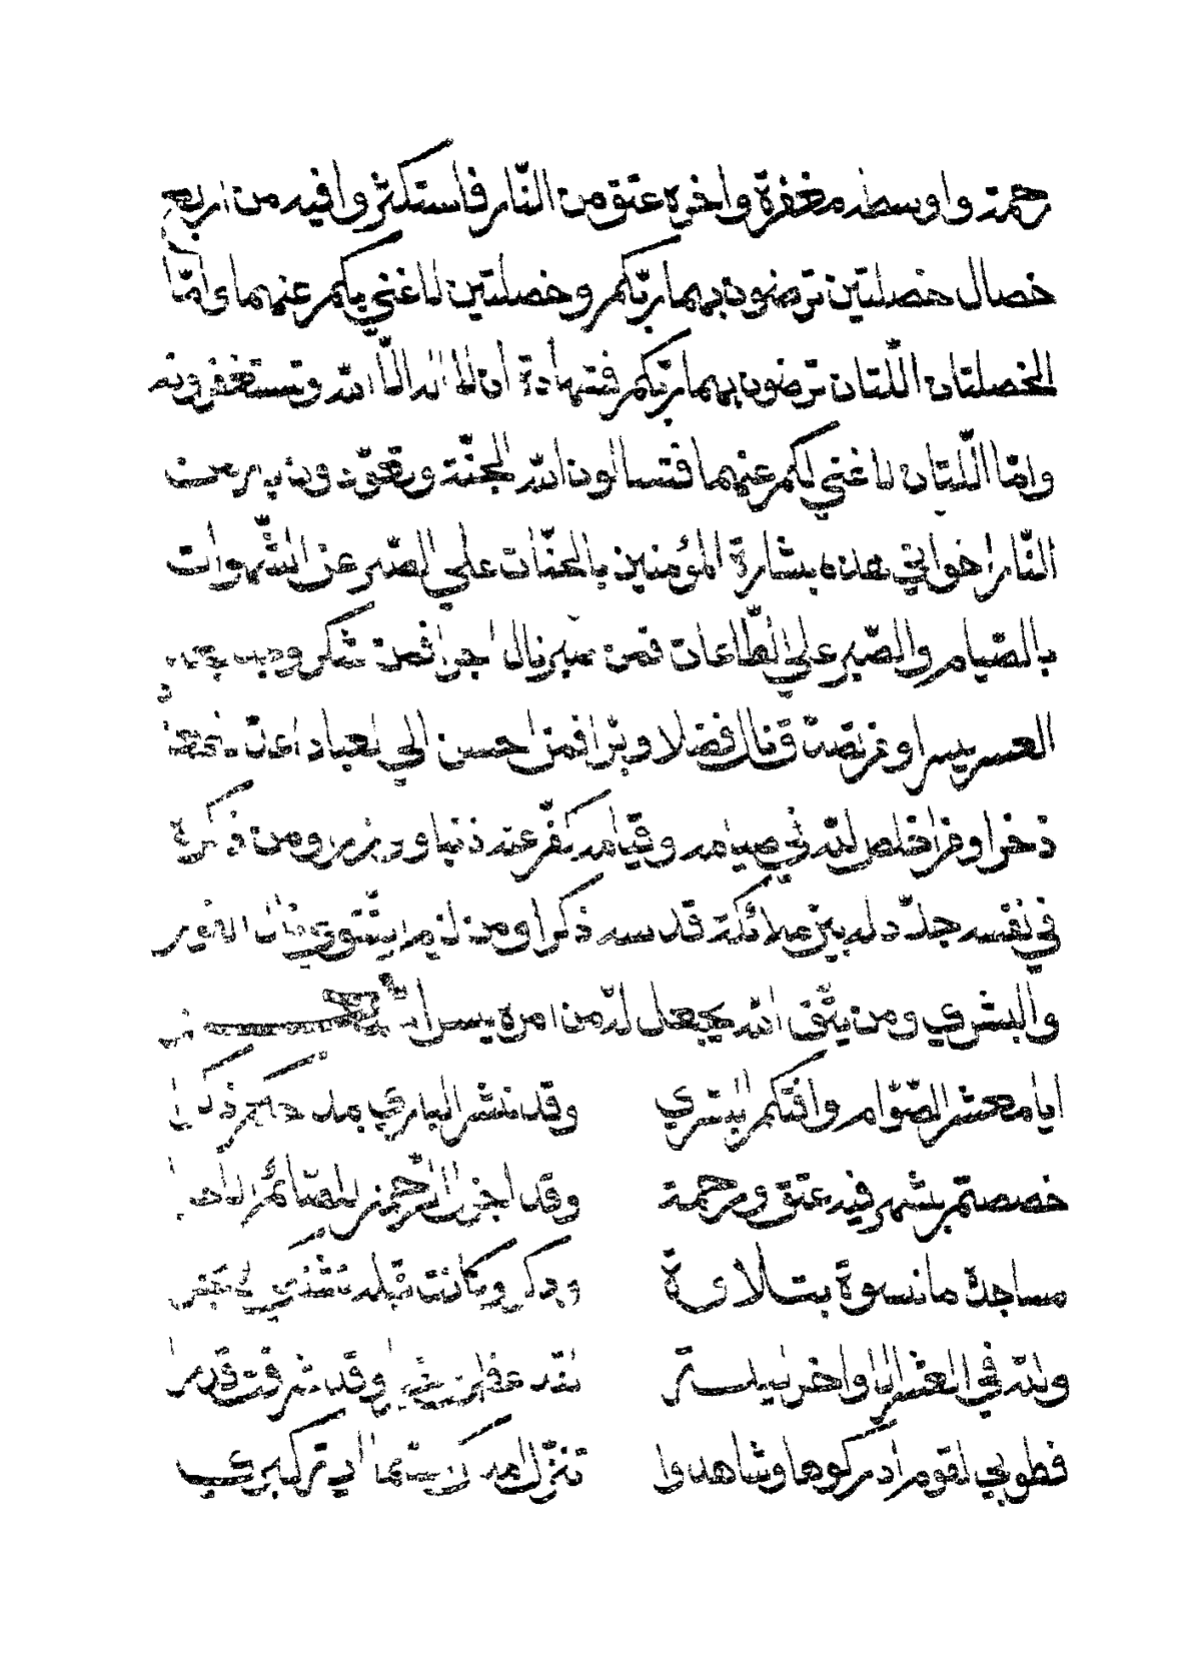 رحمة واوسطه مغفرة واخره عتق من النار فاستكثروا فيه من اربع
خصال خصلتين ترضون بهما ربكم وخصلتين لا غني بكم عنهما وامّا
الخصلتان اللّتان ترضون بهما ربّكم فشهادة ان لا اله الّا الله وتستغفرونه
وامّا اللّتان لا غني لكم عنهما فتسالون الله الجنّة وتعوّذون به من
النّار اخواني هذه بشارة المؤمنين بالجنّات علي الصّبر عن الشّهوات
بالصّيام والصّبر علي الطّاعات فمن صبر نال اجرا فمن شكر
العسر يسرا ومن تصدق نال فضلا وبرّا فمن احسن الي العباد
ذخرا ومن اخلص لله في صيامه وقيامه كفّر عنه ذنبا ووزرا ومن ذكره
في نفسه جدّد له بين ملائكة قدسه ذكرا ومن لزم التّقوي
والبشري ومن يتّق الله يجعل له من امره يسرا
ايا معشر الصّوّام وافتكم البشري وقد نشر الباري
خصصتم بشهر فيه عتق ورحمة وقد اجزل الرّحمن للصّائم الاجرا
مساجده مانسوة بتلاوة وذكر وكانت قبله تشتكي
ولله في العشر الاواخر ليلة لقد عظمت وقد شرفت قدرا
فطوبي لقوم ادركوها وشاهدوا تنزّل